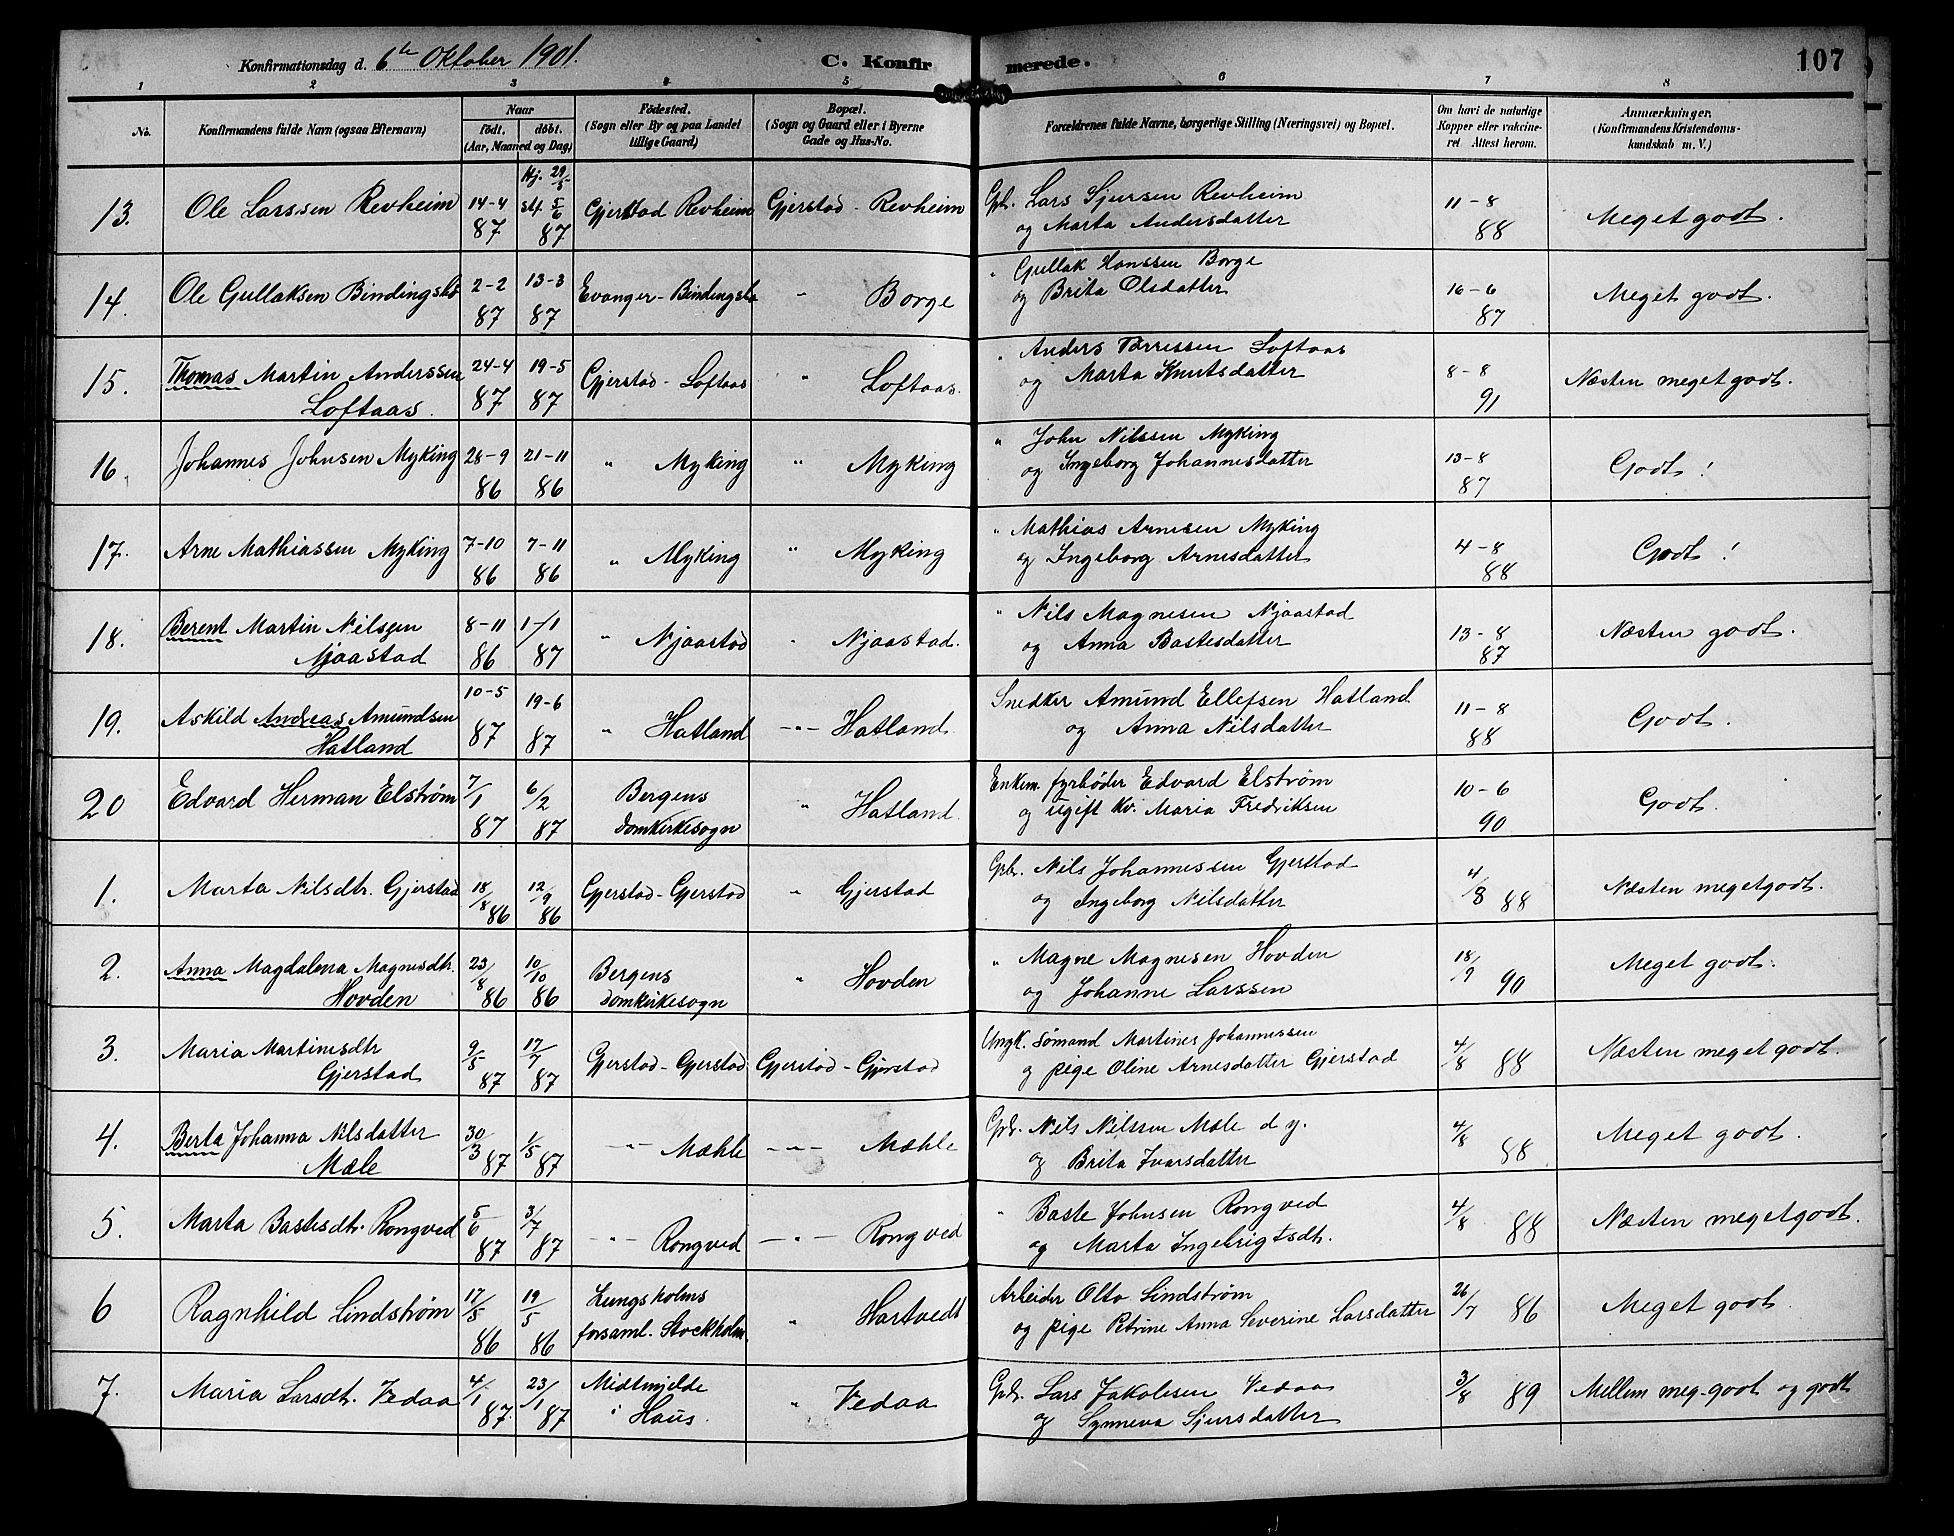 Konfirmationsdag d. 6te Oktober 1901. C. Konfirmerede. 107
1 2 3 4 5 6 7 8
No. Konfirmandens fulde Navn (ogsaa Efternavn) Naar født. døbt. (Aar, Maaned og Dag) Fødested. (Sogn eller By og paa Landet tillige Gaard) Bopæl. (Sogn og Gaard eller i Byerne Gade og Hus-No. Forældrenes fulde Navne, borgerlige Stilling (Næringsvei) og Bopæl. Om havt de naturlige Kopper eller vakcineret Attest herom. Anmærkninger. (Konfirmandens Kristendomskundskab m. V.)
13. Ole Larssen Revheim 14-4 87 Hj. 29/5 st. 5/6 87 Gjerstad Revheim Gjerstad - Revheim Gbr. Lars Sjursen Revheim og Marta Andersdatter 11-8 88 Meget godt.
14. Ole Gullaksen Bindingsbø 2-2 87 13-3 87 Evanger - Bindingsbø " Borge " Gullak Hanssen Borge og Brita Olsdatter 16-6 87 Meget godt.
15. Thomas Martin Anderssen Loftaas. 24-4 87 19-5 87 Gjerstad - Loftaas " Loftaas. " Anders Torressen Loftaas og Marta Knutsdatter 8-8 91 Næsten meget godt.
16. Johannes Johnsen Myking 28-9 86 21-11 86 " Myking " Myking " John Nilssen Myking og Ingeborg Johannesdatter 13-8 87 Godt!
17. Arne Mathiassen Myking 7-10 86 7-11 86 " Myking " Myking " Mathias Arnesen Myking og Ingeborg Arnesdatter 4-8 88 Godt!
18. Berent Martin Nilsen Njaastad 8-11 86 1/1 87 " Njaastad " Njaastad. " Nils Magnesen Njaastad og Anna Bastesdatter 13-8 87 Næsten godt.
19. Askild Andreas Amundsen Hatland 10-5 87 19-6 87 " Hatland -"- Hatland. Snedker Amund Ellefsen Hatland og Anna Nilsdatter 11-8 88 Godt.
20 Edvard Herman Elstrøm 7/1 87 6/2 87 Bergens Domkirkesogn " Hatland. Enkem. fyrbøder Edvard Elstrøm og ugift Kv. Maria Fredriksen 10-6 90 Godt.
1. Marta Nilsdtr. Gjerstad 18/8 86 12/9 86 Gjerstad - Gjerstad " Gjerstad Gbr. Nils Johannessen Gjerstad og Ingeborg Nilsdatter 4/8 88 Næsten meget godt.
2. Anna Magdalena Magnesdtr. Hovden 23/8 86 10/10 86 Bergens Domkirkesogn " Hovden " Magne Magnesen Hovden og Johanne Larssen 18/7 90 Meget godt.
3. Maria Martinesdtr Gjerstad 9/5 87 17/7 87 Gjerstad - Gjerstad Gjerstad - Gjerstad Ungk. Sømand Martines Johannessen og pige Oline Arnesdatter Gjerstad 4/8 88 Næsten meget godt.
4. Berta Johanna Nilsdatter Mæle 30/3 87 1/5 87 -"- Mæhle -"- Mæhle Gbr. Nils Nilssen Mæle d y. og Brita Ivarsdatter 4/8 88 Meget godt.
5. Marta Bastesdtr. Rongved 5/6 87 3/7 87 -"- Rongved -"- Rongved " Baste Johnsen Rongved og Marta Ingebrigtsdtr. 4/8 88 Næsten meget godt.
6 Ragnhild Lindstrøm 17/5 86 19/5 86 Kungsholms forsaml. Stockholm " Hartvedt Arbeider Otto Lindstrøm og pige Petrine Anna Severine Larsdatter 26/7 86 Meget godt.
7. Maria Larsdtr. Vedaa 4/1 87. 23/1 87 Midtmjelde i Haus. " Vedaa Gbr. Lars Jakobsen Vedaa og Synneva Sjursdatter 3/8 89 Mellem meg. godt og godt